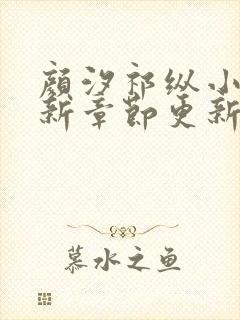 顾汐祁纵小
新章节更新
慕水之鱼